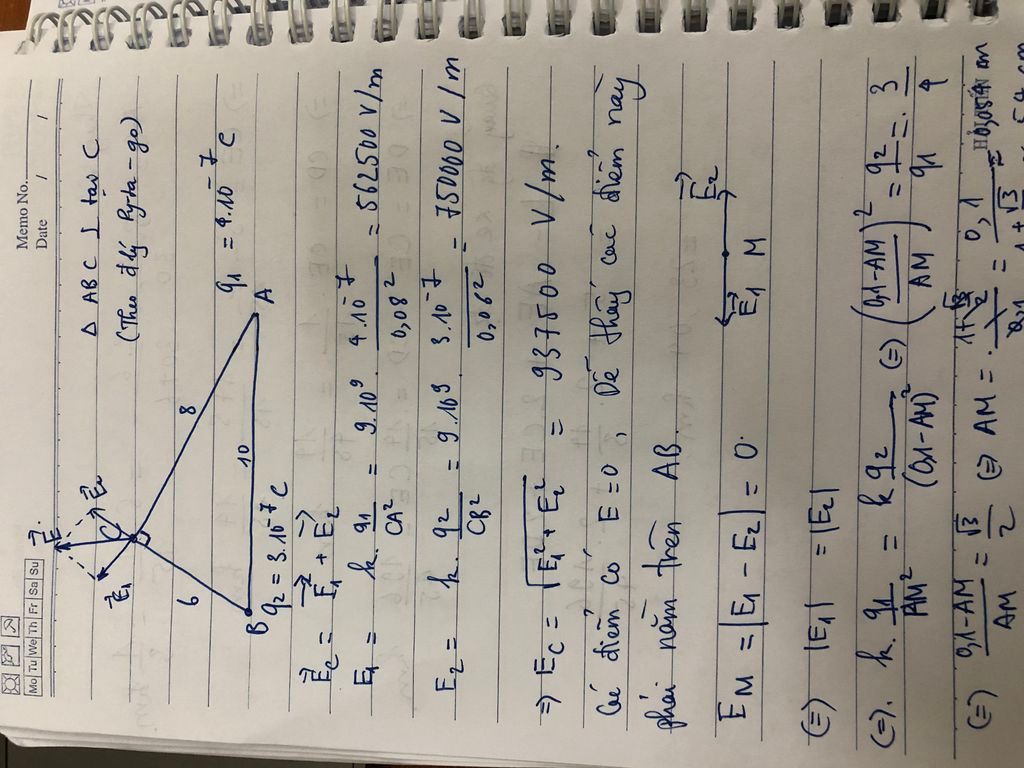 Memo No.
Mo Tu We Th Fr Sa Su
Date / /
Δ ABC ⊥ tại C
(Theo đ lý Pyta-go)
E⃗
E⃗₁
E⃗₂
C
6
8
10
B
A
q₂ = 3.10⁻⁷ C
q₁ = 4.10⁻⁷ C
E⃗c = E⃗₁ + E⃗₂
E₁ = k. q₁/CA² = 9.10⁹ 4.10⁻⁷/0,08² = 562500 V/m
E₂ = k. q₂/CB² = 9.10⁹ 3.10⁻⁷/0,06² = 750000 V/m
=> Ec = √(E₁² + E₂²) = 937500 V/m.
Các điểm có E=0, Dễ thấy các điểm này
phải nằm trên AB.
E⃗₁ M E⃗₂
E_M = |E₁ - E₂| = 0.
(=) |E₁| = |E₂|
(=). k. q₁/AM² = k q₂/(0,1-AM)² (=) ((0,1-AM)/AM)² = q₂/q₁ = 3/4
(=) (0,1-AM)/AM = √3/2 (=) AM =